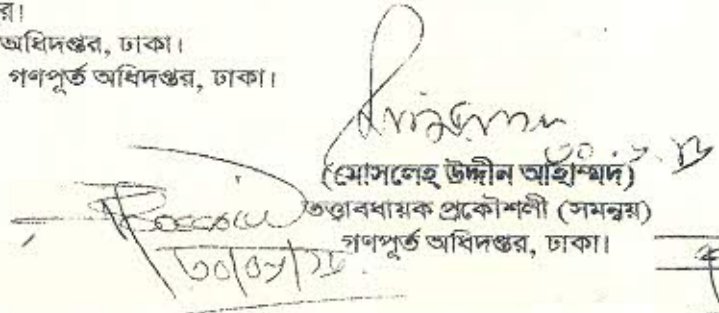 র।
অধিদপ্তর, ঢাকা।
গণপূর্ত অধিদপ্তর, ঢাকা।
(মোসলেহ্ উদ্দীন আহাম্মদ)
তত্ত্বাবধায়ক প্রকৌশলী (সমন্বয়)
গণপূর্ত অধিদপ্তর, ঢাকা।